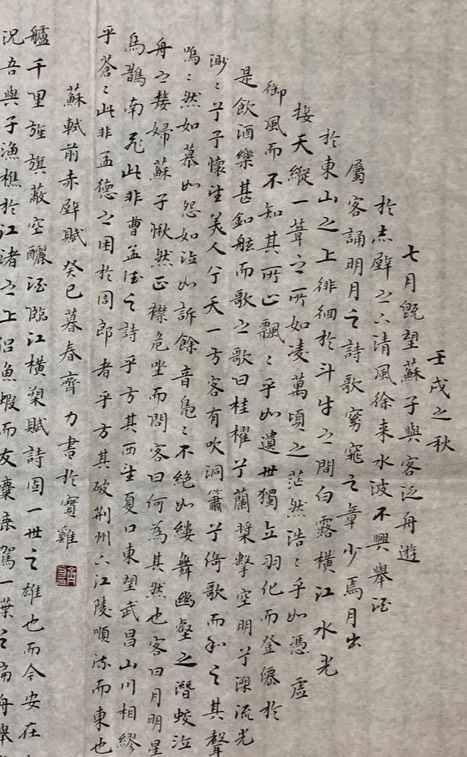 壬戌之秋
七月既望蘇子與客泛舟遊
於赤壁之下清風徐来水波不興舉酒
屬客誦明月之詩歌窈窕之章少焉月出
於東山之上徘徊於斗牛之間白露橫江水光
接天縱一葦之所如凌萬頃之茫然浩〻乎如憑虛
御風而不知其所止飄〻乎如遺世獨立羽化而登僊於
是飲酒樂甚釦舷而歌之歌曰桂櫂兮蘭槳擊空明兮溯流光
渺〻兮予懷望美人兮天一方客有吹洞簫兮倚歌而和之其聲
嗚〻然如慕如怨如泣如訴餘音裊〻不絕如縷舞幽壑之潛蛟泣
舟之嫠婦蘇子愀然正襟危坐而問客曰何為其然也客曰月明星
烏鵲南飛此非曹孟德之詩乎方其西望夏口東望武昌山川相繆
乎蒼〻此非孟德之困於周郎者乎方其破荆州下江陵順流而東也
蘇軾前赤壁賦 癸巳暮春齊力書於寶雞
艫千里旌旗蔽空釃酒臨江橫槊賦詩固一世之雄也而今安在
況吾與子漁樵於江渚之上侶魚蝦而友麋鹿駕一葉之扁舟舉